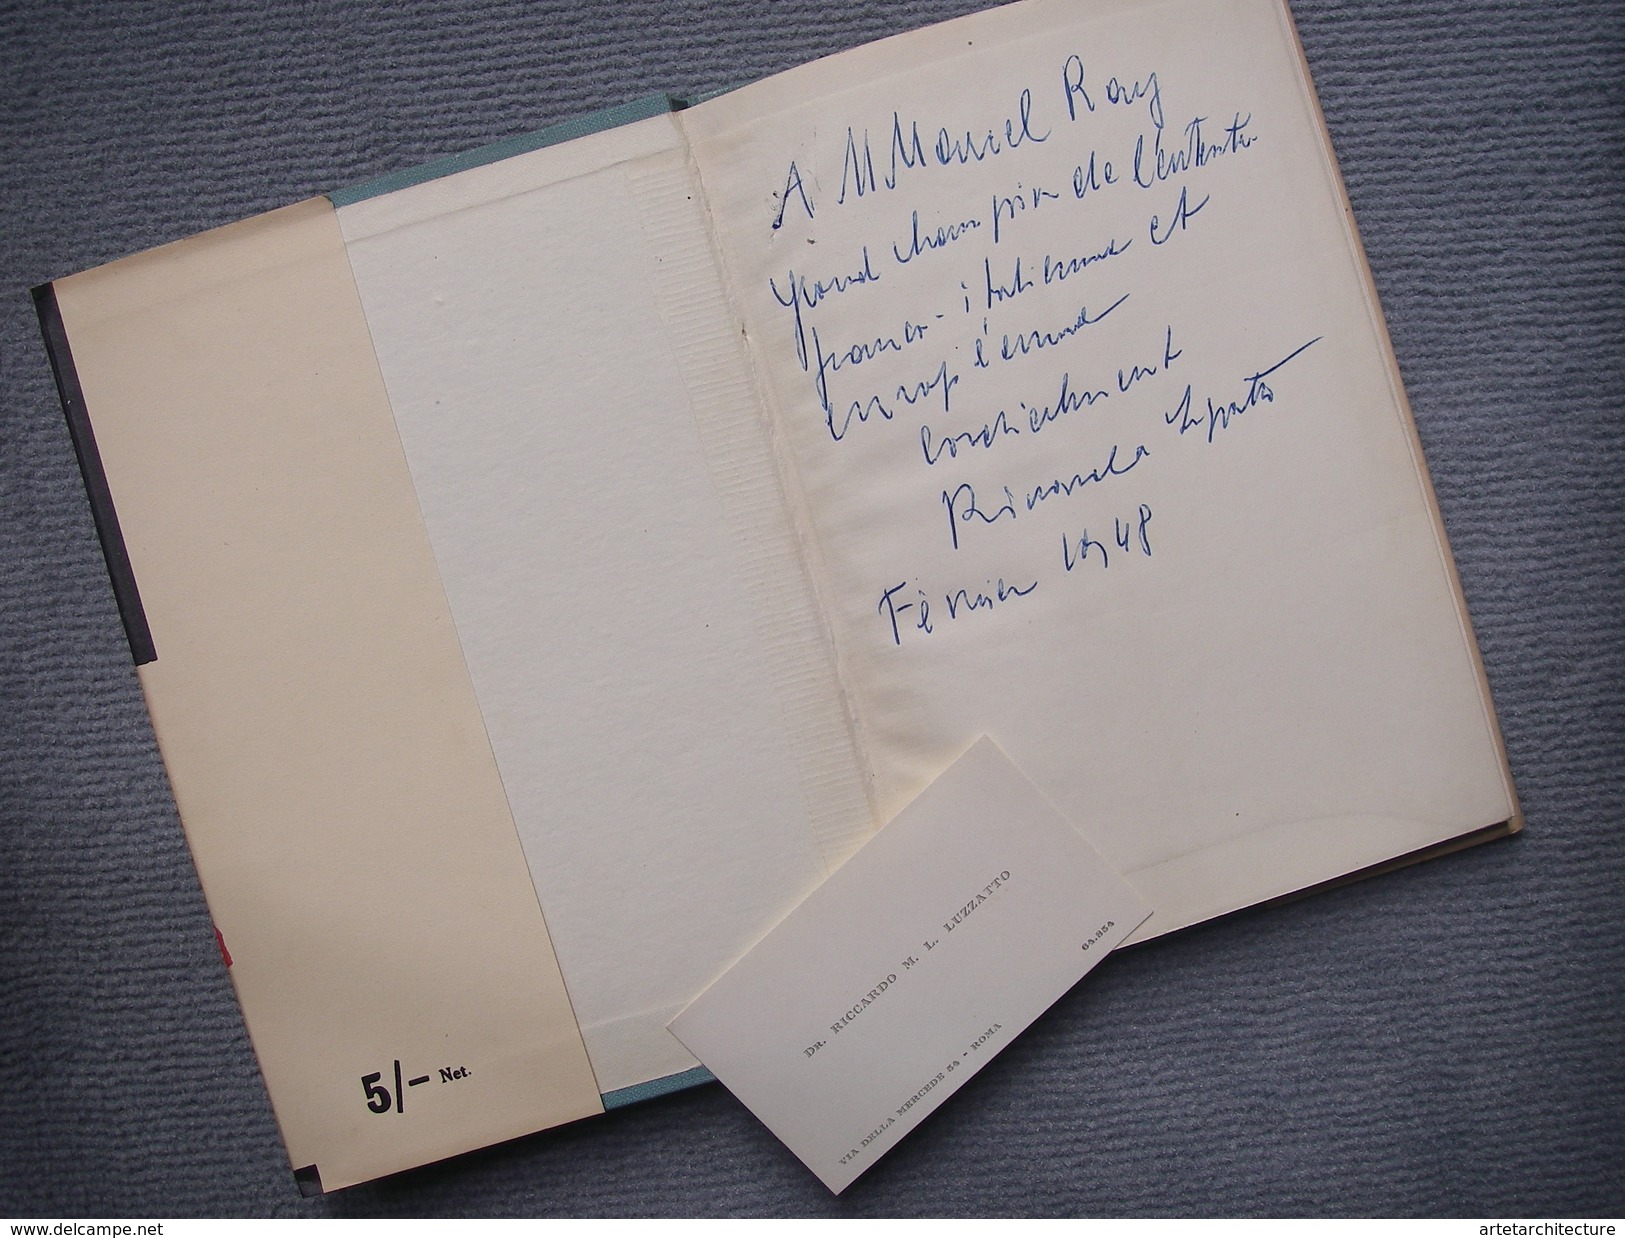 A M Marcel Ray
grand champion de l'entente
franco-italienne et
européenne
Cordialement
Février 1948
5/- Net.
DR. RICCARDO M. L. LUZZATTO
64.854
VIA DELLA MERCEDE 54 - ROMA
www.delcampe.net
artetarchitecture